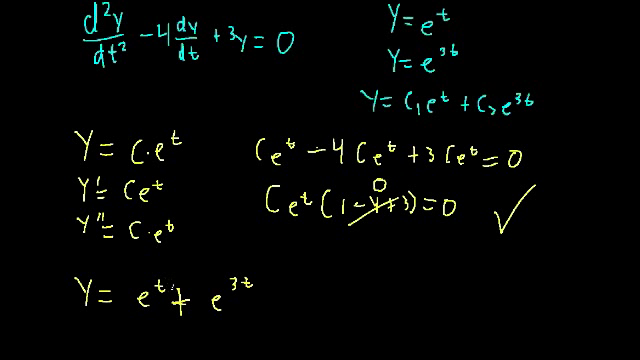 d²y/dt² - 4 dy/dt + 3y = 0
y = e^t
y = e^3t
y = c₁e^t + c₂e^3t
y = c·e^t
y' = ce^t
y'' = c·e^t
ce^t - 4ce^t + 3ce^t = 0
ce^t (1 - 4 + 3) = 0
0
✓
y = e^t + e^3t